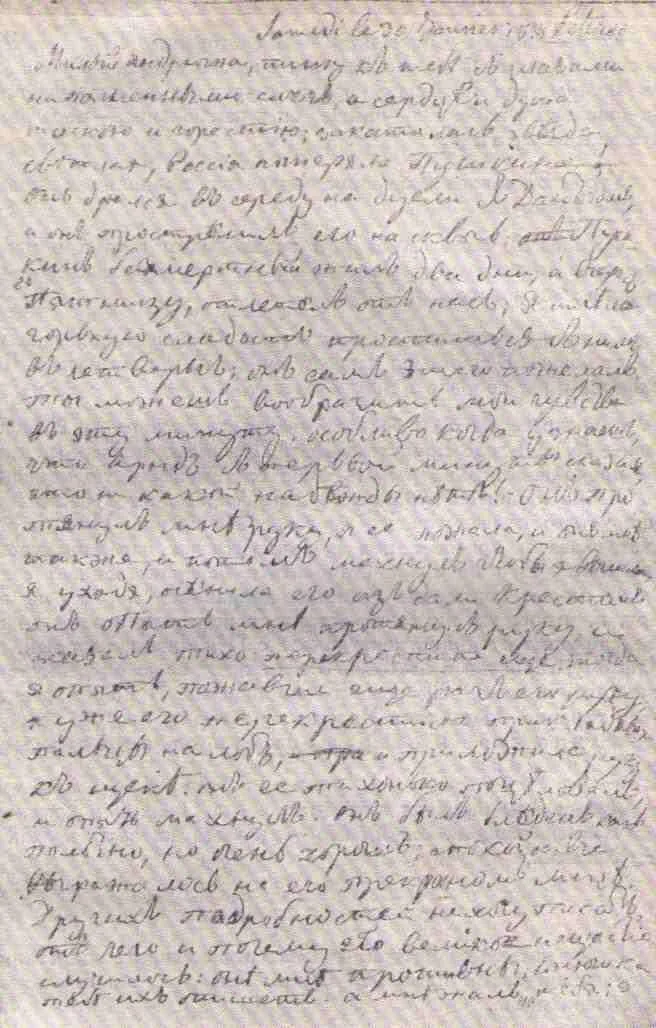 Samedi le 30 Janvier 1837
Милый Андрюша, пишу къ тебѣ съ глазами
наполненными слезъ, а сердце и душа
тоскою и горестію; закатилась звѣзда
свѣтлая, Россія потеряла Пушкина!
онъ дрался въ середу на дуели съ Дантезомъ,
и онъ прострѣлилъ его на сквозь, Пуш
кинъ безсмертный жилъ два дни, а вчера
въ пятницу, отлетелъ отъ насъ; я имѣла
горькую сладость проститься съ нимъ
въ четвергъ; онъ самъ этаго пожелалъ
ты можешь вообразить мои чувства
въ эту минуту, особливо когда узнаешь,
что Арндъ съ первой минуты сказалъ,
что никакой надѣжды нѣтъ! Онъ про
тянулъ мнѣ руку, я ее пожала, и онъ мнѣ
также, и потомъ махнулъ чтобы я вышла
я уходя, осѣнила его изъ дали крестомъ
онъ опять мнѣ протянулъ руку и
сказалъ тихо перекрестите еще, тогда
я опять, пожавши еще разъ его руку
я уже его перекрестила прикладывая
пальцы на лобъ, и приложила руку
къ щекѣ: онъ ее тихонько поцѣловалъ,
и опять махнулъ. онъ былъ блѣденъ какъ
полотно, но очень хорошъ; спокойствіе
выражалось на его прекрасномъ лицѣ.
Другихъ подробностей не хочу писать,
отъ чего и почему это великое нещастіе
случилось: онѣ мнѣ противны;
тебѣ ихъ опишетъ. а мнѣ жаль